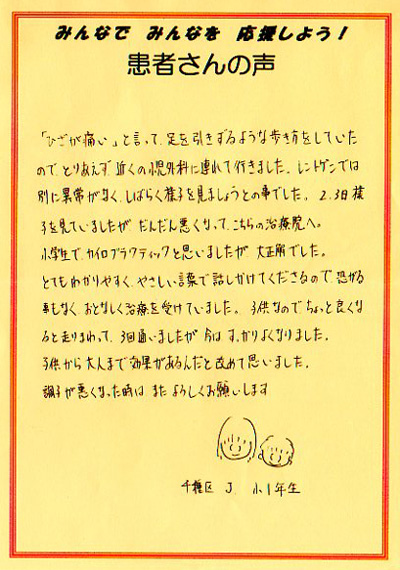 みんなで みんなを 応援しよう！
患者さんの声
「ひざが痛い」と言って、足を引きずるような歩き方をしていた
ので、とりあえず 近くの小児外科に連れて行きました。レントゲンでは
別に異常がなく、しばらく様子を見ましょうとの事でした。 2、3日様
子を見ていましたが だんだん悪くなって、こちらの治療院へ。
小学生で、カイロプラクティックと思いましたが 大正解でした。
とてもわかりやすく、やさしい言葉で話しかけてくださるので、恐がる
事もなく、おとなしく治療を受けていました。 子供なのでちょっと良くな
ると走りまわって、3回通いましたが 今は すっかりよくなりました。
子供から大人まで効果があるんだと 改めて思いました。
調子が悪くなった時は また よろしくお願いします
千種区 J 小1年生